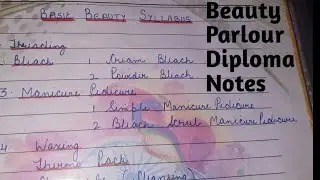 BASIC BEAUTY SYLLABUS
Threading
Bleach 1 Cream Bleach
2 Powder Bleach
3. Manicure Pedicure
1 Simple Manicure Pedicure
2 Bleach Scrub Manicure Pedicure
4 Waxing
Thermo Pack
Beauty
Parlour
Diploma
Notes